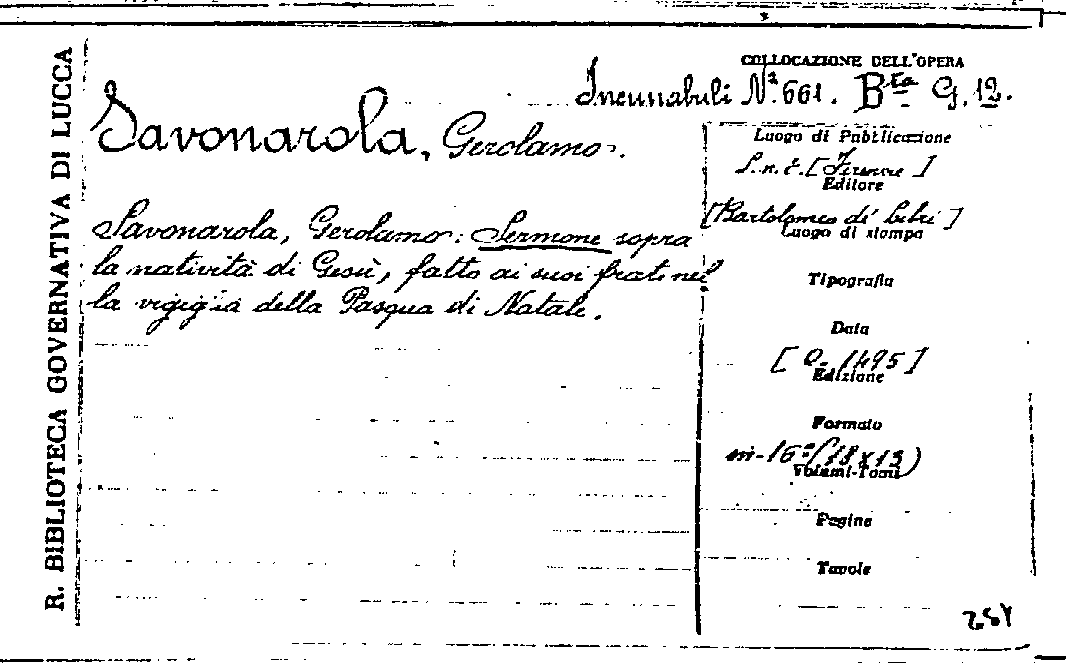 R. BIBLIOTECA GOVERNATIVA DI LUCCA
COLLOCAZIONE DELL'OPERA
Incunabuli N.º 661. Bta G. 12.
Savonarola, Gerolamo.
Savonarola, Gerolamo: Sermone sopra
la natività di Gesù, fatto ai suoi frati nel
la vigiglia della Pasqua di Natale.
Luogo di Pubblicazione
S. n. t. [Firenze]
Editore
[Bartolomeo di Libri]
Luogo di stampa
Tipografia
Data
[1495]
Edizione
Formato
in-16º (18 x 13)
Volumi-Tomi
Pagine
Tavole